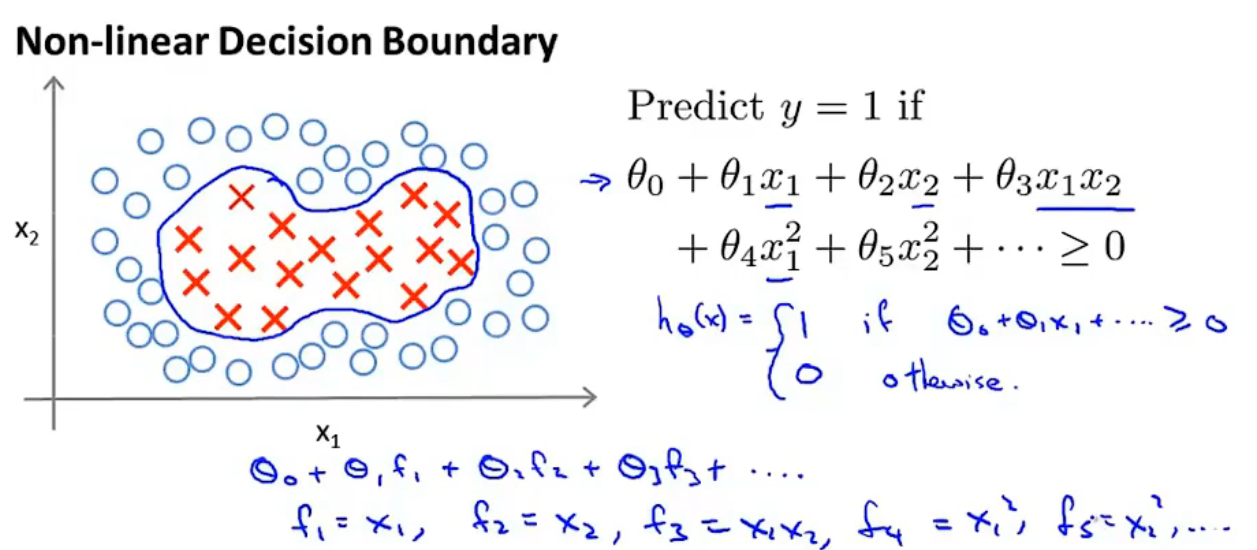 Non-linear Decision Boundary
x₂
x₁
Predict y = 1 if
→ θ₀ + θ₁x₁ + θ₂x₂ + θ₃x₁x₂
+ θ₄x₁² + θ₅x₂² + ⋯ ≥ 0
hθ(x) = { 1 if θ₀+θ₁x₁+ ⋯ ≥ 0
0 otherwise.
θ₀ + θ₁f₁ + θ₂f₂ + θ₃f₃ + ....
f₁ = x₁, f₂ = x₂, f₃ = x₁x₂, f₄ = x₁², f₅ = x₂², ....